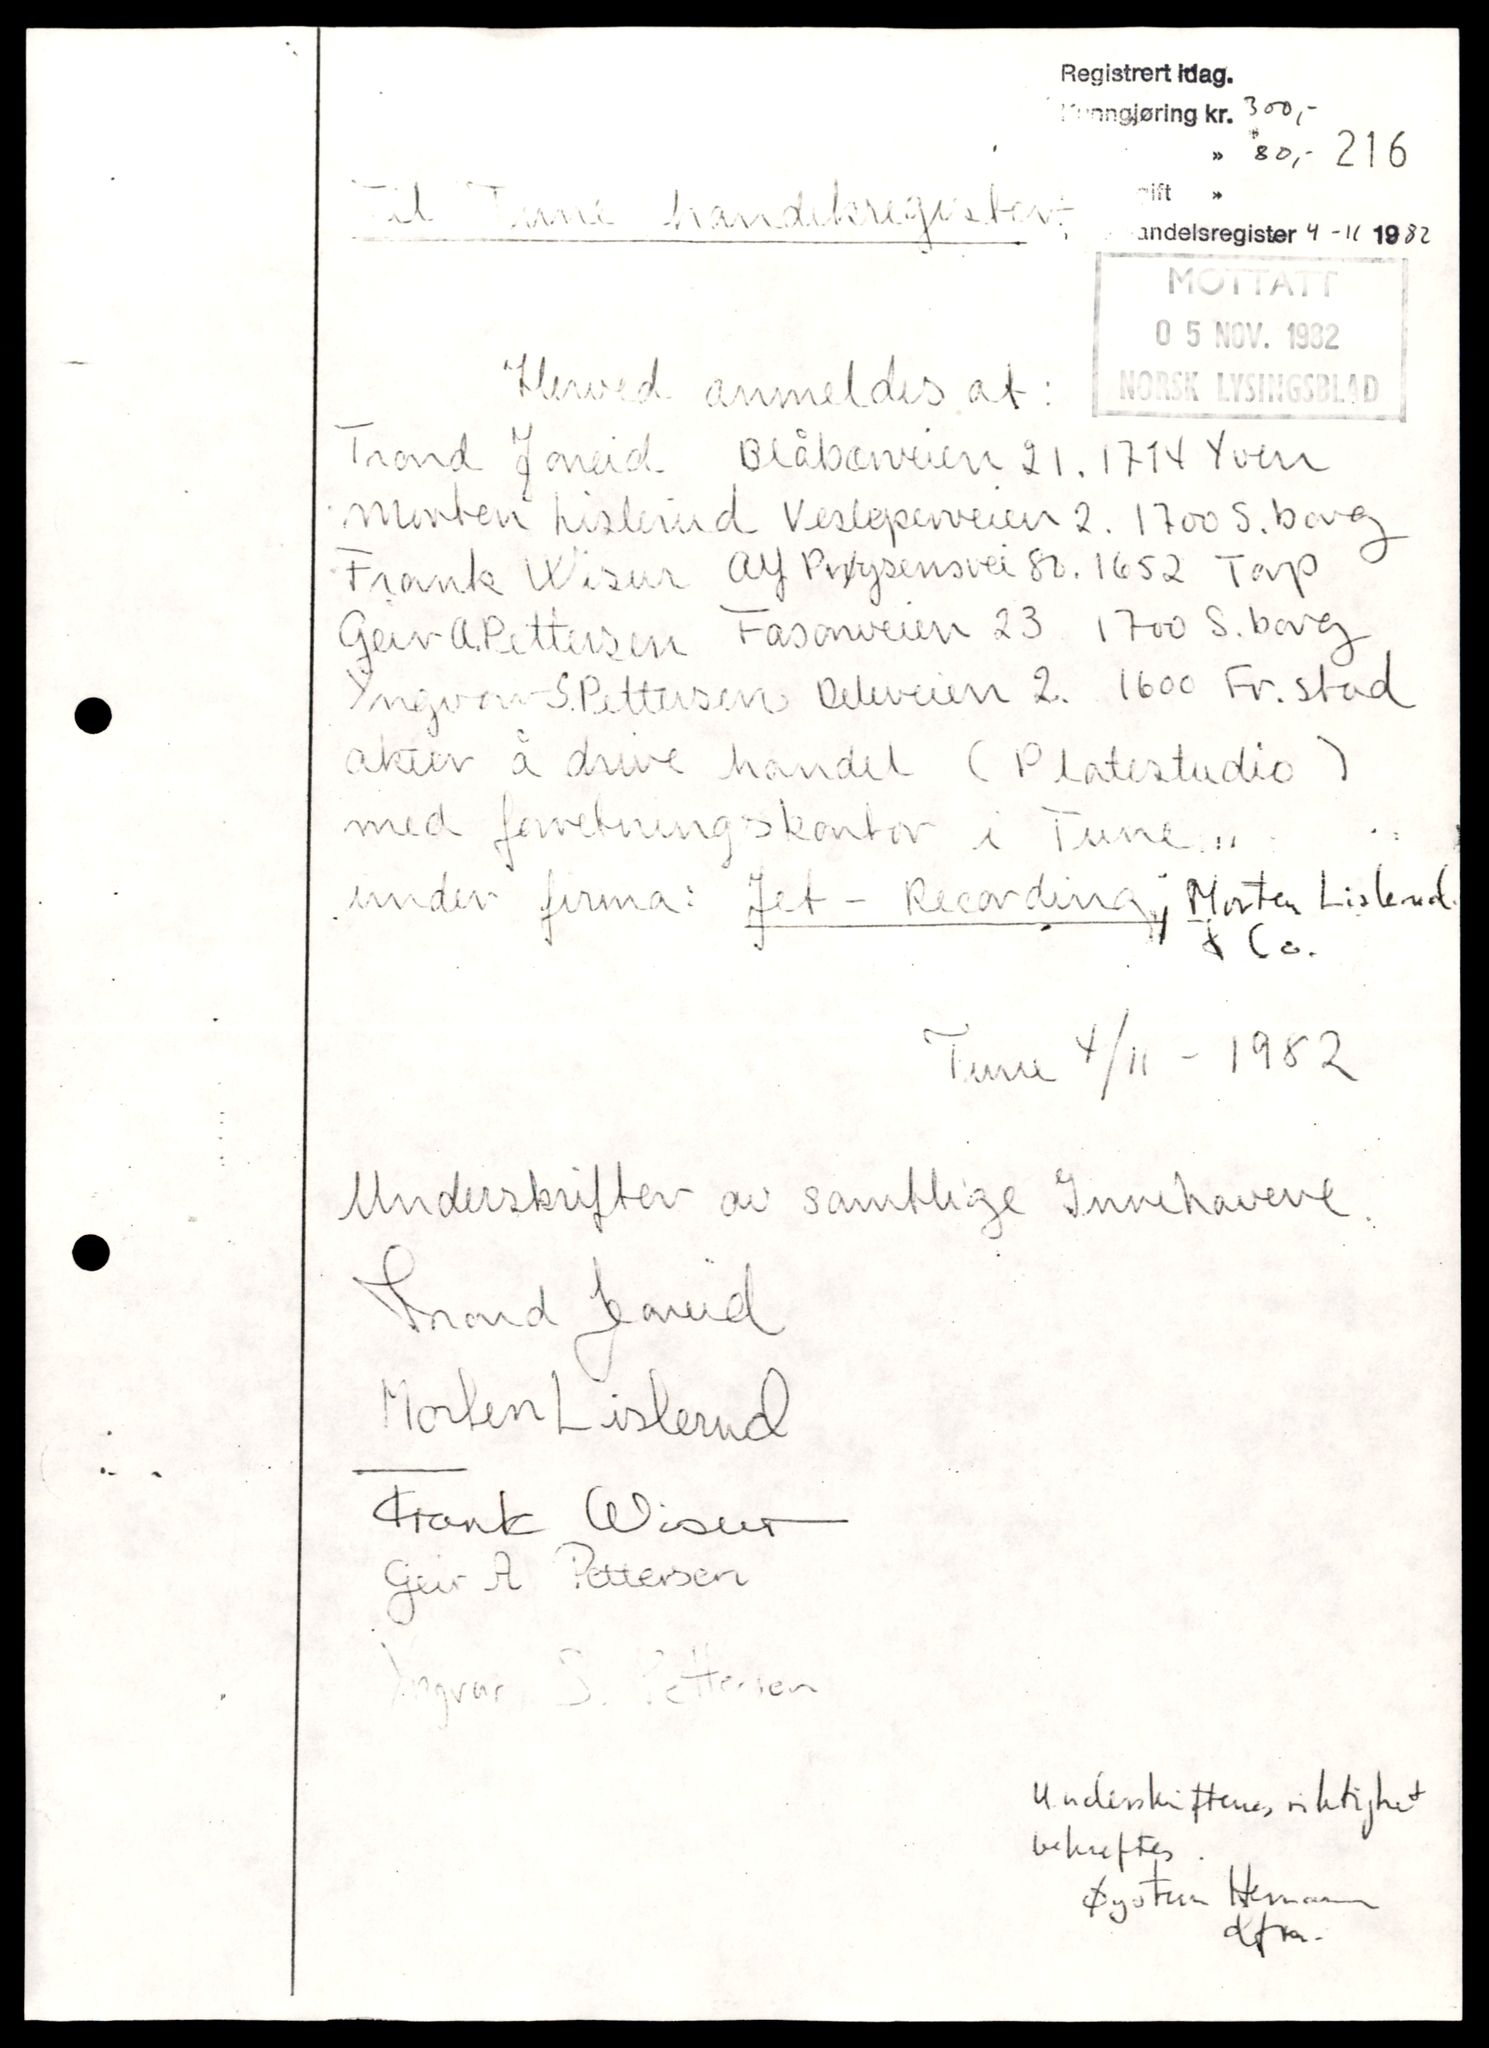 Registrert idag.
Kunngjøring kr. 300,-
» 80,- 216
gift »
Til Tune handelsregister,
handelsregister 4-11 1982
MOTTATT
05 NOV. 1982
NORSK LYSINGSBLAD
Herved anmeldes at:
Trond Joneid Blåbærveien 21. 1714 Yven
Morten Lislerud Vesleperveien 2. 1700 S.borg
Frank Wisur Alf Prøysensvei 80. 1652 Torp
Geir A. Pettersen Fasanveien 23 1700 S.borg
Yngvar S. Pettersen Deleveien 2. 1600 Fr.stad
akter å drive handel (Platestudio)
med forretningskontor i Tune
under firma: Jet - Recording, Morten Lislerud
& Co.
Tune 4/11 - 1982
Underskrifter av samtlige Innehavere.
Trond Joneid
Morten Lislerud
Frank Wisur
Geir A Pettersen
Yngvar S. Pettersen
Underskriftenes riktighet
bekreftes.
Øystein Hermann
dfm.